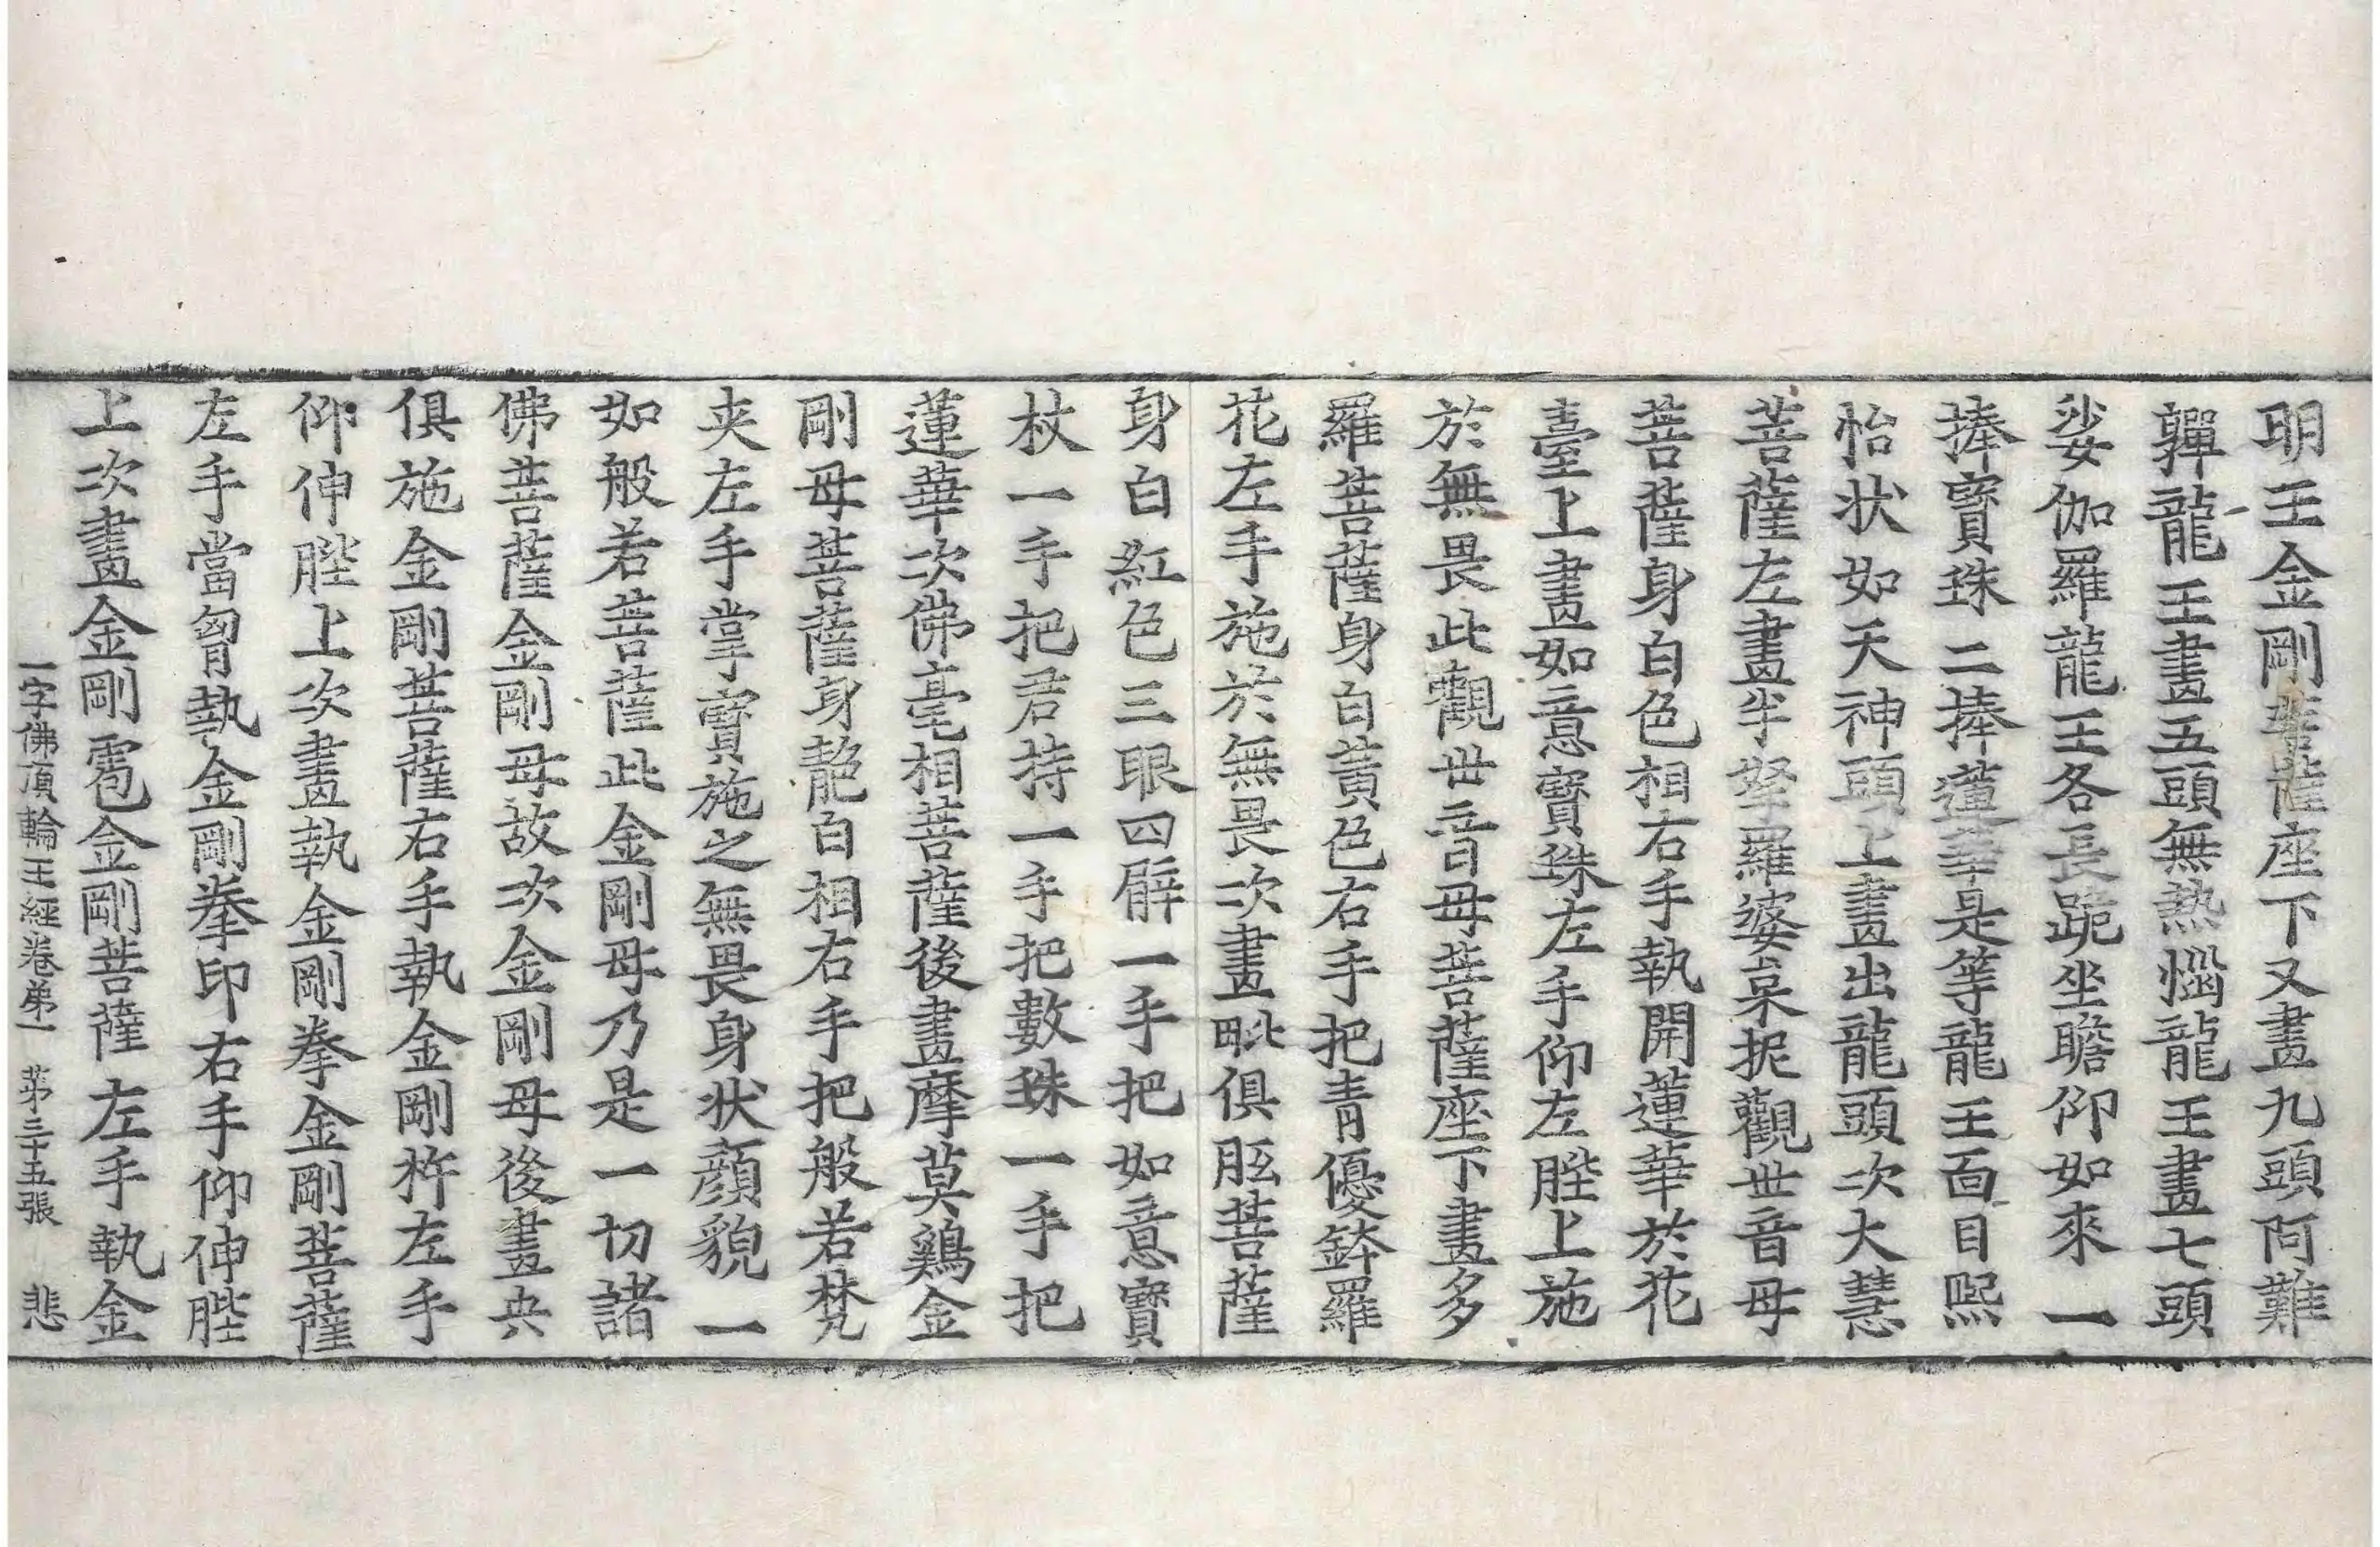 明王金剛菩薩座下又畫九頭阿難
亸龍王畫五頭無熱惱龍王畫七頭
娑伽羅龍王各長跪坐瞻仰如來一
捧寶珠二捧蓮華是等龍王面目熙
怡狀如天神頭上畫出龍頭次大慧
菩薩左畫半拏羅婆枲抳觀世音母
菩薩身白色相右手執開蓮華於花
臺上畫如意寶珠左手仰左䏶上施
於無畏此觀世音母菩薩座下畫多
羅菩薩身白黃色右手把青優鉢羅
花左手施於無畏次畫毗俱胝菩薩
身白紅色三眼四臂一手把如意寶
杖一手把君持一手把數珠一手把
蓮華次佛毫相菩薩後畫摩莫鷄金
剛母菩薩身靘白相右手把般若梵
夾左手掌寶施之無畏身狀顔貌一
如般若菩薩此金剛母乃是一切諸
佛菩薩金剛母故次金剛母後畫央
俱施金剛菩薩右手執金剛杵左手
仰伸䏶上次畫執金剛拳金剛菩薩
左手當胷執金剛拳印右手仰伸䏶
上次畫金剛雹金剛菩薩左手執金
一字佛頂輪王經卷弟一 苐三十五張 悲